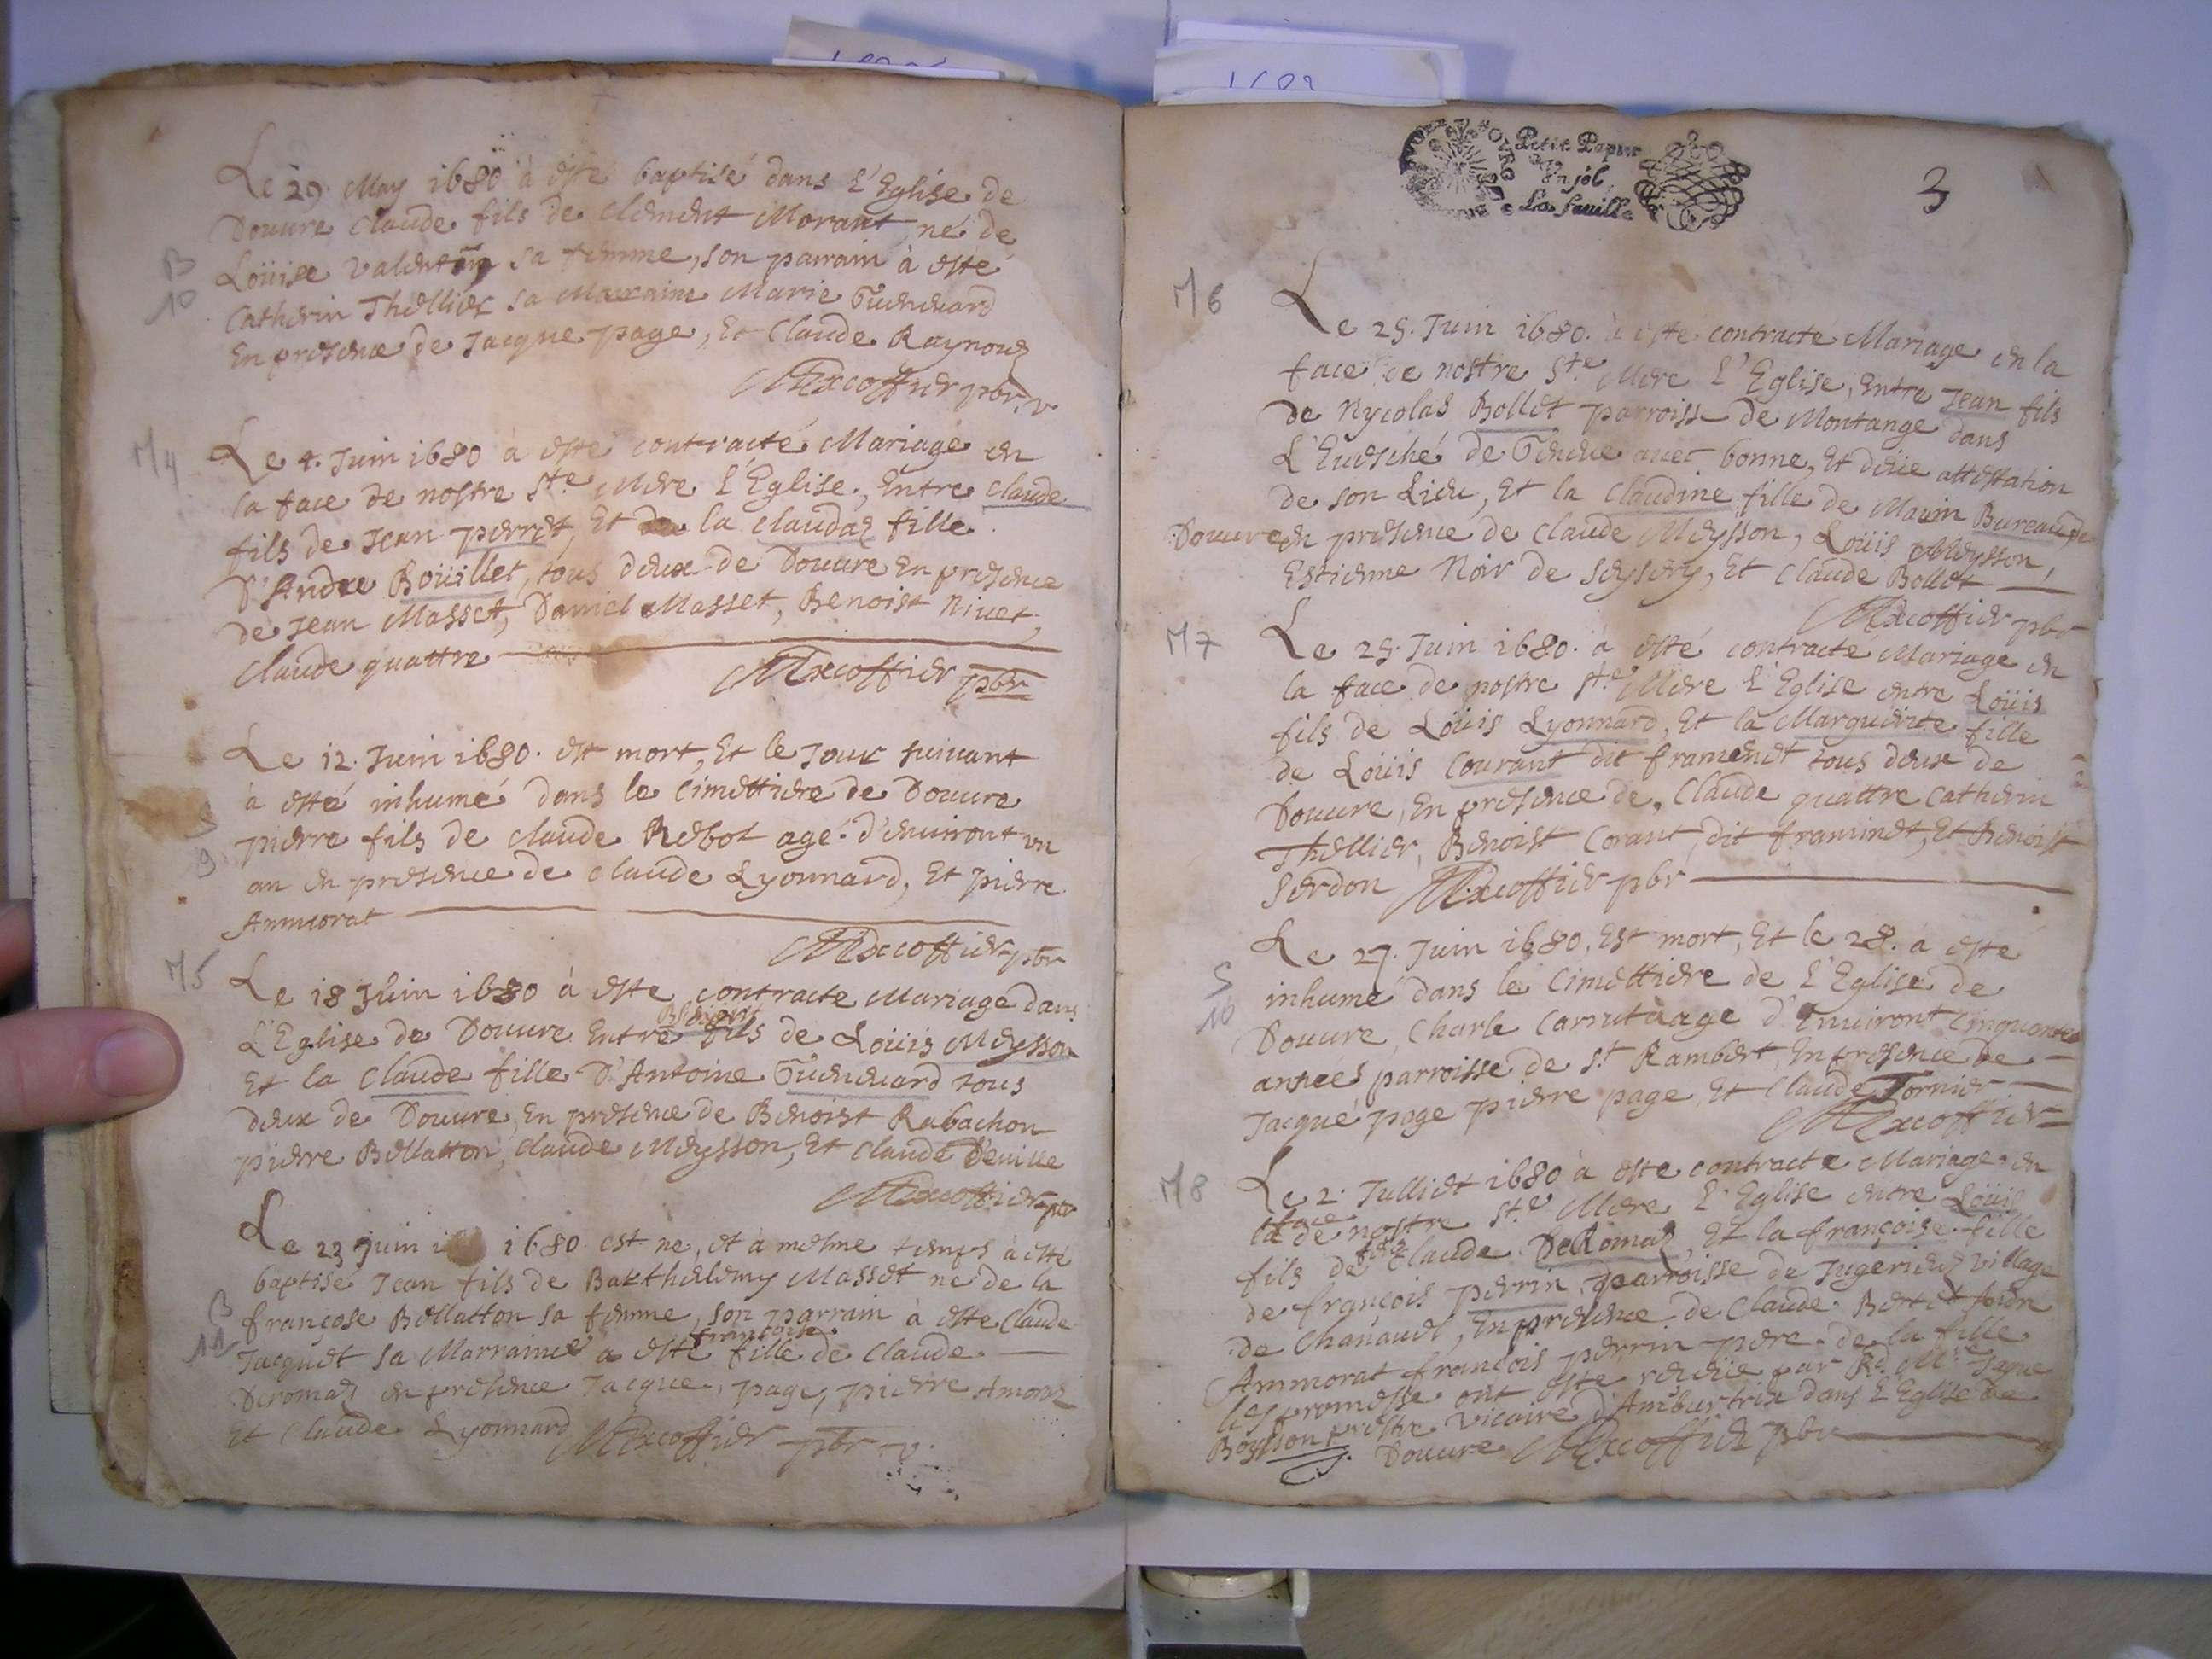 Le 29. May 1680 à esté baptisé dans l'Eglise de
Douure Claude fils de Clement Morant né de
Loüise Valentin sa femme, son parrain à esté
B
10
Catherin Thellier sa Marraine Marie Guenuard
En presence de Jacque page, Et Claude Raynoud
MExcoffier pbr. v.
M4
Le 4. Juin 1680 à esté contracté Mariage en
la face de nostre Ste Mere l'Eglise, Entre Claude
fils de Jean perret, Et la Claudaz fille
D'Andre Boüillet, tous deux de Douure En presence
de Jean Masset, Daniel Masset, Benoist Niuet,
Claude quattre
MExcoffier pbr
Le 12. Juin 1680. est mort, Et le Jour suiuant
à esté inhumé dans le Cimettiere de Douure
S
9
pierre fils de Claude Rebot agé d'enuiront un
an en presence de Claude Lyonnard, Et pierre
Ammorat
MExcoffier pbr
M5
Le 18 Juin 1680 à esté contracte Mariage dans
L'Eglise de Douure Entre fils de Loüis Meysson
Et la Claude fille D'Antoine Guenuard tous
deux de Douure, En presence de Benoist Rabachon
pierre Bellatton, Claude Meysson, Et Claude Deuille
MExcoffier pbr
Le 23 Juin 1680 est ne, et à mesme temps à esté
baptisé Jean fils de Barthelemy Masset né de la
B
11
françose Bellatton sa femme, son parrain à esté Claude
Jacquet sa Marraine a esté françoise fille de Claude
Deromaz en presence Jacque, page, pierre Amoraz
Et Claude Lyonnard MExcoffier pbr v.
Petit Papier
Vn sol
La feuille
3
M6
Le 25. Juin 1680. à esté contracte Mariage en la
face de nostre Ste Mere L'Eglise, Entre Jean fils
de Nycolas Bollet parroisse de Montange dans
L'Euesché de Geneue auec bonne, Et deüe attestation
de son Lieu, Et la Claudine fille de Mauin Bureau, de
Douure en presence de Claude Meysson, Loüis Meysson,
Estienne Noir de Seysery, Et Claude Bollet
MExcoffier pbr
M7
Le 25. Juin 1680. à esté contracté Mariage en
la face de nostre Ste Mere l'Eglise entre Loüis
fils de Loüis Lyonnard, Et la Marguerite fille
de Loüis Courant dit framenet tous deux de
Douure, En presence de, Claude quattre Catherin
Thellier, Benoist Corant, dit framinet, Et Benoist
Serdon MExcoffier pbr
Le 27. Juin 1680, Est mort, Et le 28. à esté
S
10
inhumé dans le Cimettiere de L'Eglise de
Douure, Charle age d'Enuiront Cinquante
annees parroisse de St Rambert, En presence de
Jacque page pierre page, Et Claude Tornier
MExcoffier
M8
Le 2. Julliet 1680 à esté contracte Mariage en
la face de nostre Ste Mere L'Eglise entre Loüis
fils de Claude DeRomaz Et la françoise fille
de françois perrin, parroisse de Jugerieux Village
de Chanauel, En presence de Claude Bertet
Ammorat francois perrin pere de la fille
les promesse ont esté receüe par Rd Mre
Boysson prestre Vicaire d'Amburtrix dans L'Eglise de
Douure MExcoffier pbr